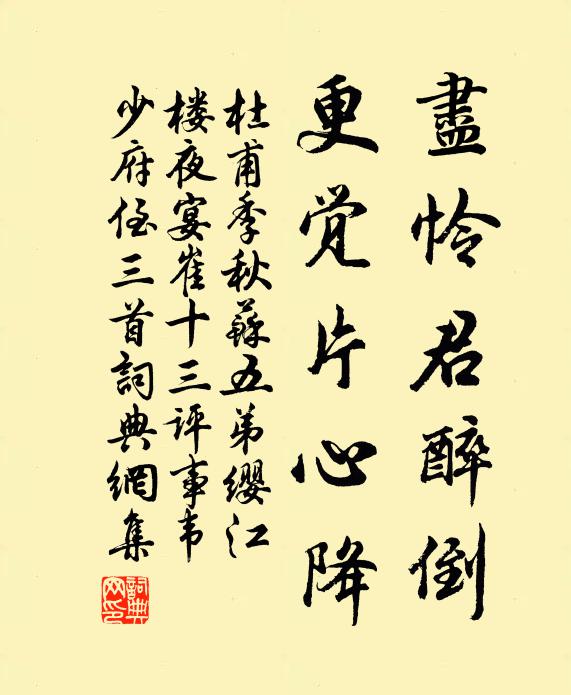 盡怜君醉倒
更覚片心降
杜甫季秋蘇五弟纓江
楼夜宴崔十三评事韦
少府侄三首詞典網集
詞典网印